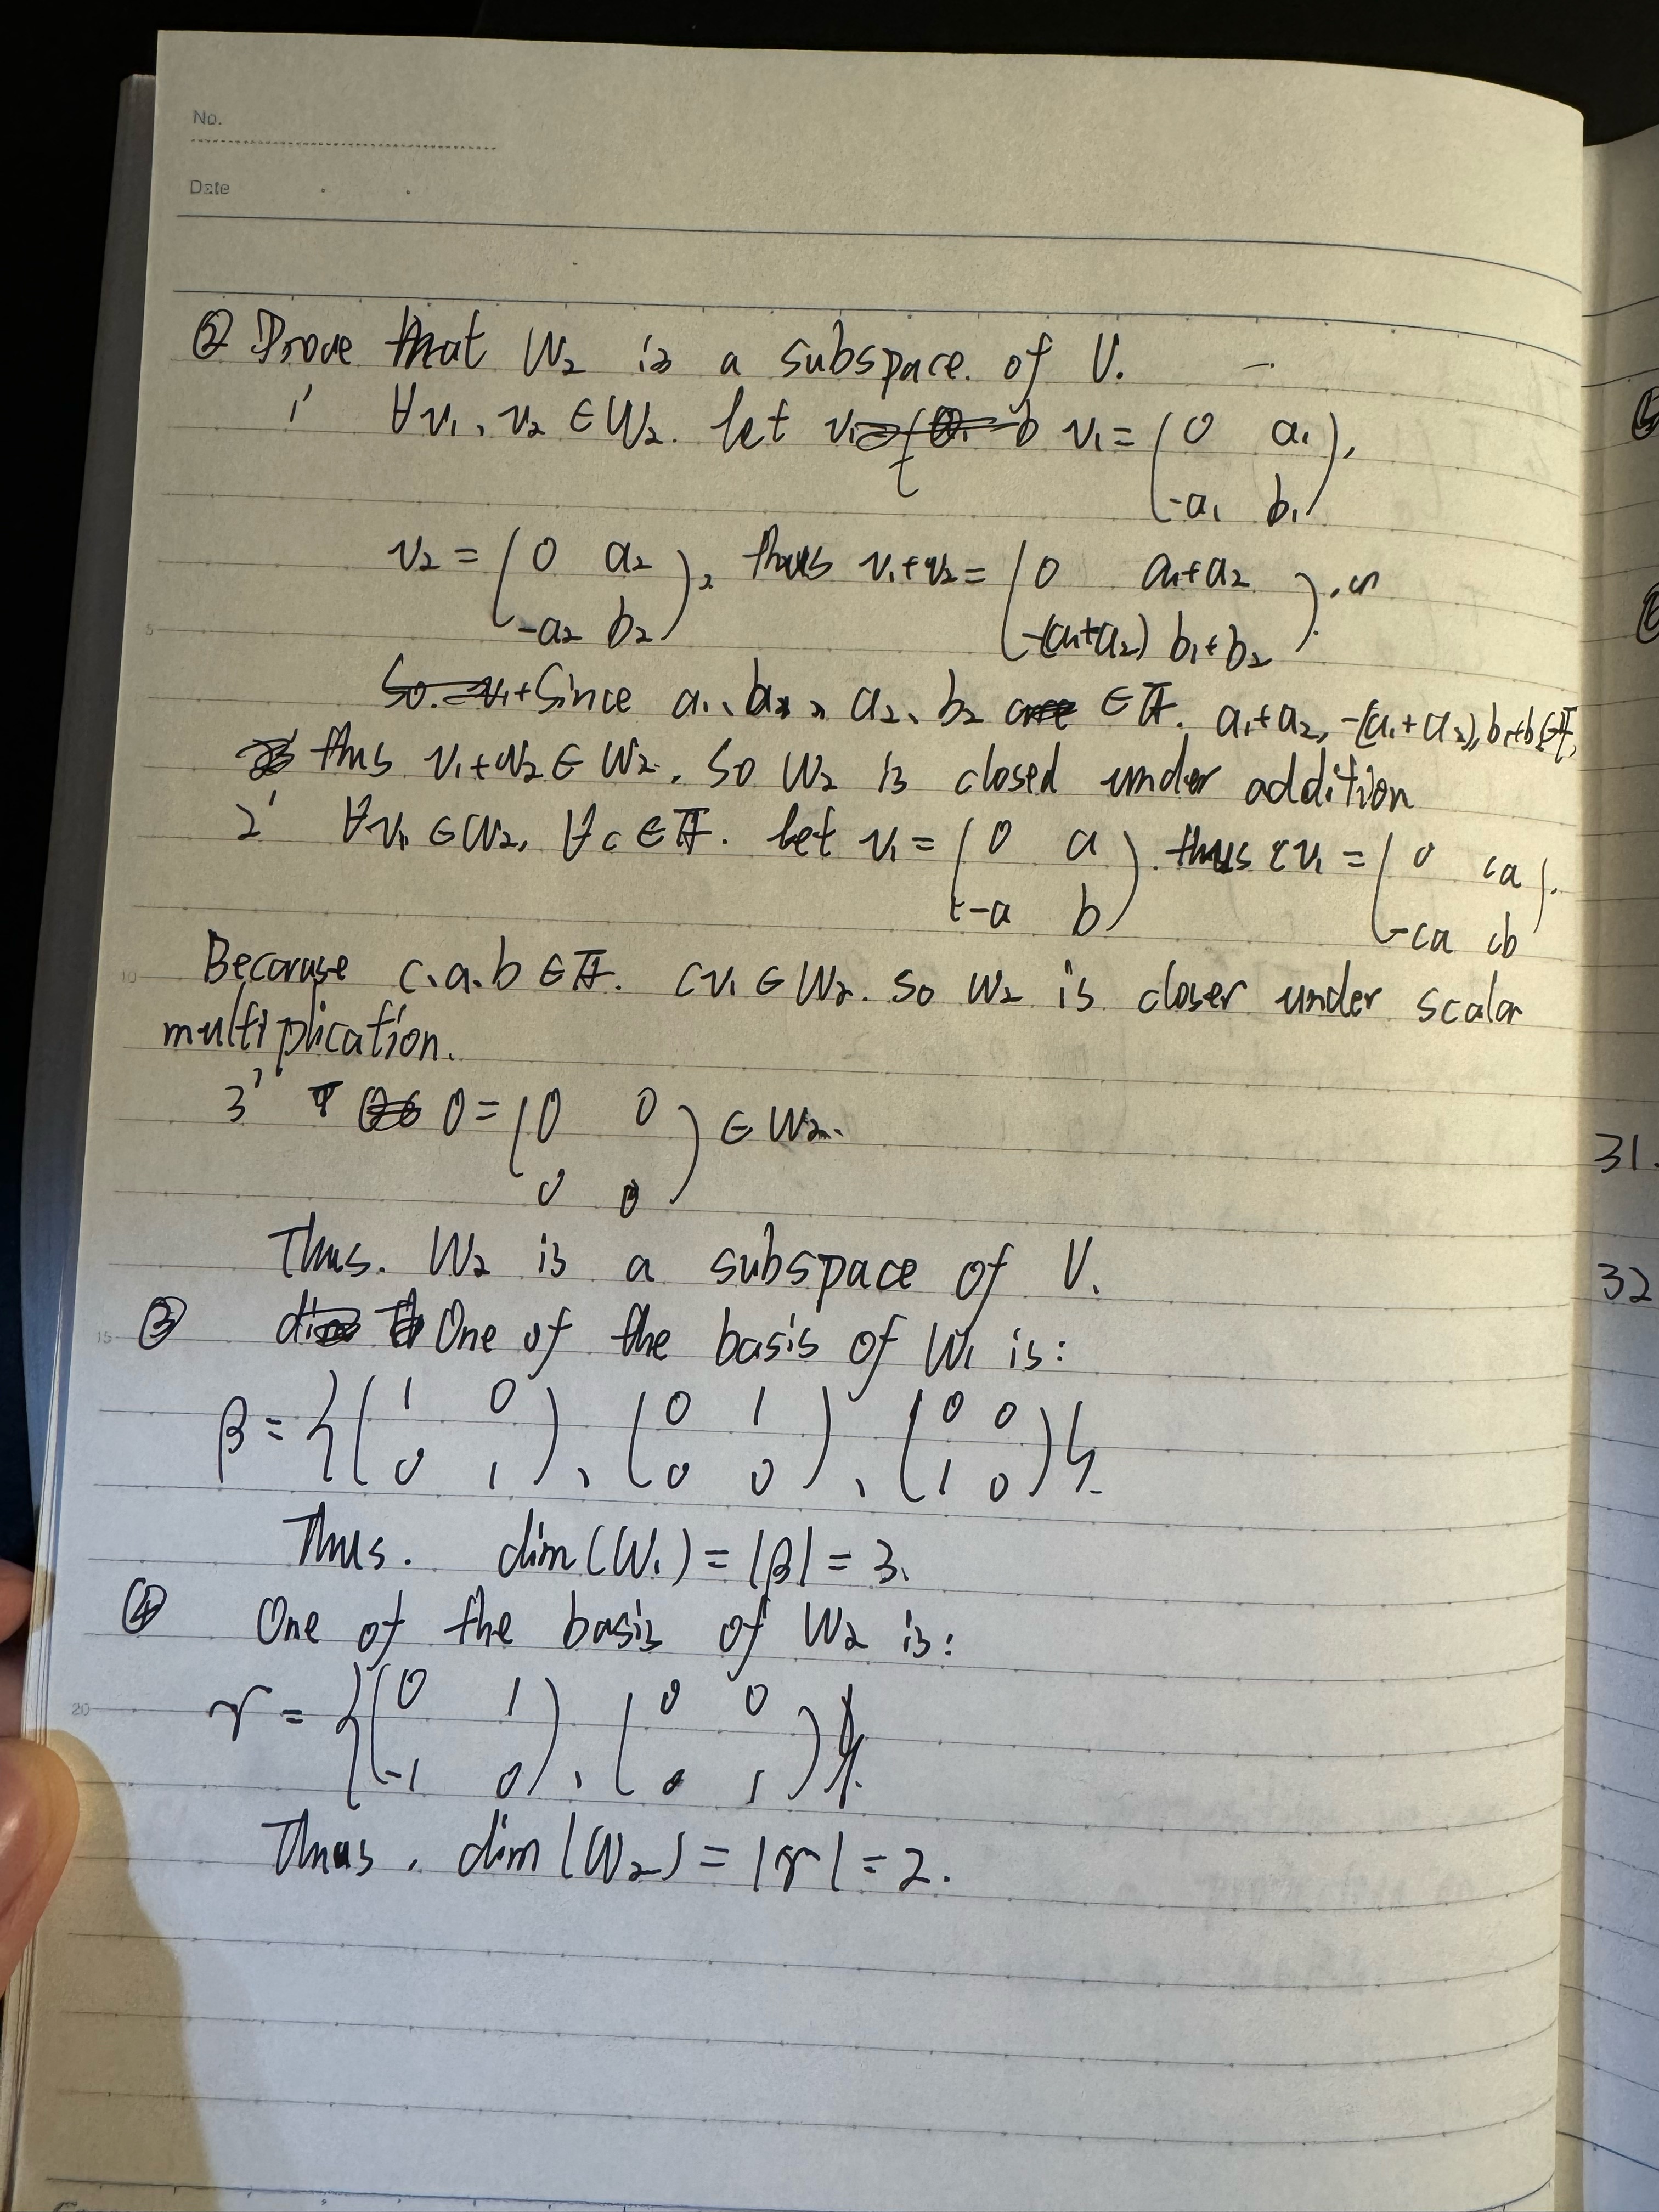 No.
Date
② Prove that W₂ is a subspace of V.
1' ∀v₁, v₂ ∈ W₂. let v₁ = (0 a₁
-a₁ b₁),
v₂ = (0 a₂
-a₂ b₂), thus v₁+v₂ = (0 a₁+a₂
-(a₁+a₂) b₁+b₂).
Since a₁, b₁, a₂, b₂ ∈ F. a₁+a₂, -(a₁+a₂), b₁+b₂ ∈ F,
thus v₁+v₂ ∈ W₂. So W₂ is closed under addition
2' ∀v₁ ∈ W₂, ∀c ∈ F. let v₁ = (0 a
-a b). thus cv₁ = (0 ca
-ca cb).
Because c, a, b ∈ F. cv₁ ∈ W₂. So W₂ is closer under scalar
multiplication.
3' 0 = (0 0
0 0) ∈ W₂.
Thus. W₂ is a subspace of V.
③ One of the basis of W₁ is:
β = {(1 0
0 1), (0 1
0 0), (0 0
1 0)}.
Thus. dim(W₁) = |β| = 3.
④ One of the basis of W₂ is:
γ = {(0 1
-1 0), (0 0
0 1)}.
Thus, dim(W₂) = |γ| = 2.
5
10
15
20
31.
32